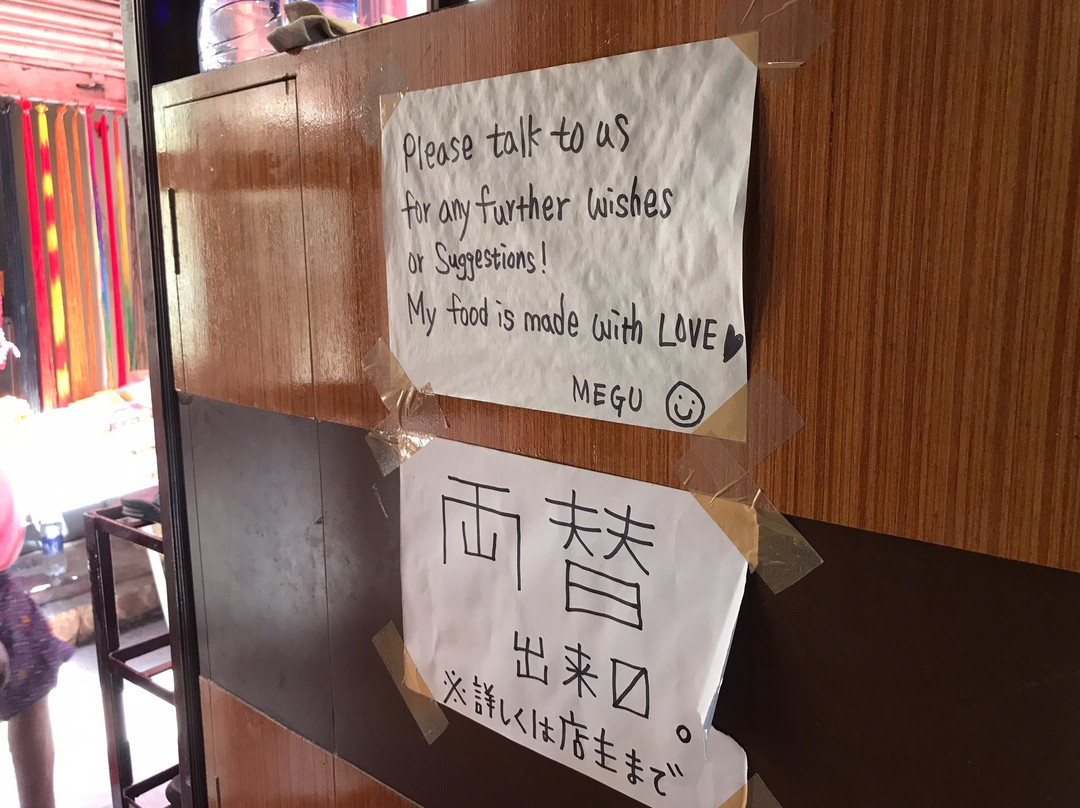 Please talk to us
for any further wishes
or Suggestions!
My food is made with LOVE♥
MEGU ☺
両替
出来〼。
※詳しくは店主まで